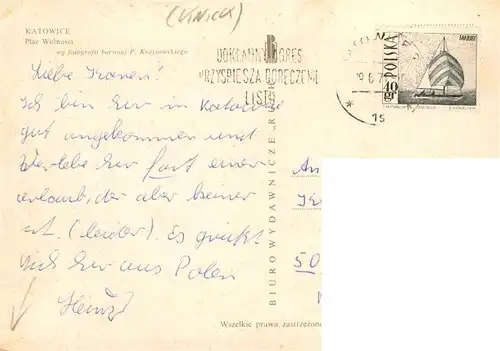 (KNICK)
KATOWICE
Plac Wolności
wg fotografii barwnej P. Krassowskiego
DOKŁADNY ADRES
PRZYSPIESZA DORĘCZENIE
LISTU
POLSKA
10 gr
Liebe
Ich bin hier in Katowice
gut angekommen und
verlebe hier fast einen
Urlaub, der aber keiner
ist. (leider). Es grüßt
Dich hier aus Polen
Heinz
BIURO WYDAWNICZE „RUCH"
An
50
Wszelkie prawa zastrzeżone